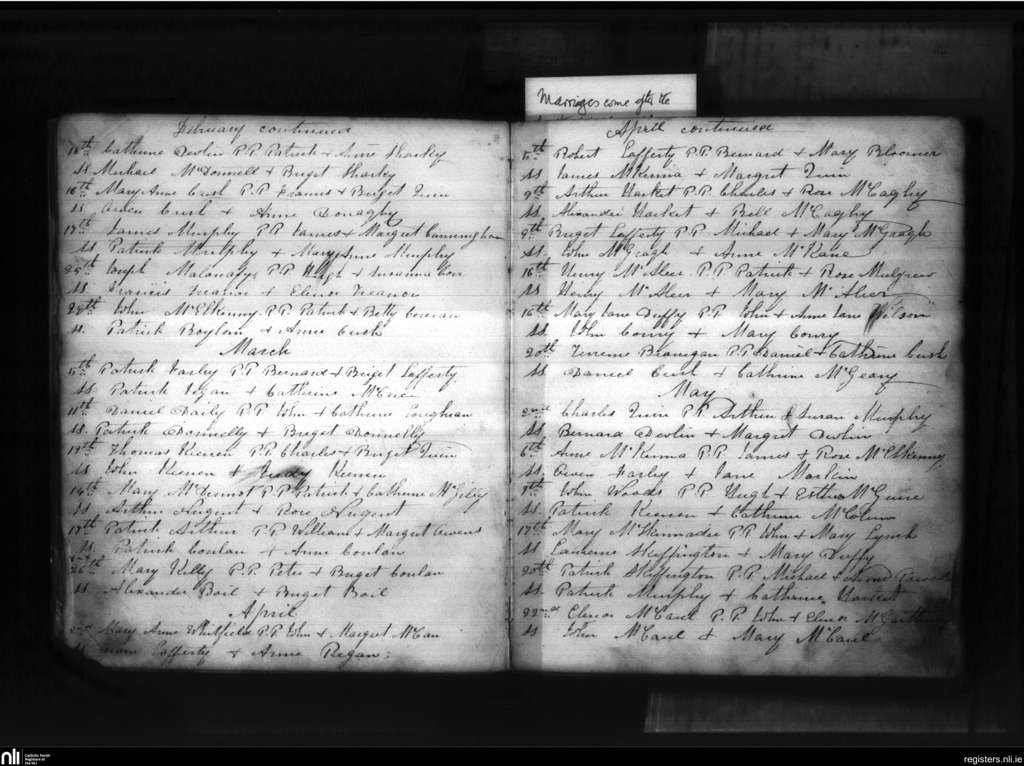 Marriages come after the
February continued
Catherine Devlin P.P. Patrick & Anne Sharkey
ss Michael McDonnell & Briget Sharkey
10th Mary Anne Cush P.P. Francis & Briget Quin
ss Cush & Anne Donaghy
James Murphy P.P. James & Margret Cunningham
ss Patrick Murtphy & Mary Anne Murphy
25th Joseph P.P. Hugh & Susanna
ss Francis Treanor & Elenor Treanor
28th John McElkenny P.P. Patrick & Betty
ss. Patrick Boylan & Anne Cush
March
5th Patrick Farley P.P. Bernard & Briget Lafferty
ss Patrick & Catherine
11th Daniel Daily P.P. John & Catherine Loughran
ss. Patrick Donnelly & Briget Donnelly
Thomas Keenen P.P. Charles & Briget Quin
ss John Keenen & Judy Keenen
14th Mary McDermot P.P. Patrick & Catherine
ss Arthur Nugent & Rose Nugent
17th Patrick Arthur P.P. William & Margret Owens
ss. Patrick Conlan & Anne Conlan
26th Mary Kelly P.P. Peter & Briget Conlan
ss Alexander Boil & Briget Boil
April
2nd Mary Anne Whitfield P.P. John & Margret McCan
Lafferty & Anne Regan
April continued
Robert Lafferty P.P. Bernard & Mary Bloomer
ss James McKenna & Margret Quin
9th Arthur Harket P.P. Charles & Rose McCaghy
ss. Alexander Harket & Bell McCaghy
9th Briget Lafferty P.P. Michael & Mary McGragh
ss. John McGragh & Anne McKane
16th Henry McAleer P.P. Patrick & Rose Mulgrew
ss Henry McAleer & Mary McAleer
16th Mary Jane Duffy P.P. John & Anne Jane Wilson
ss. John Conry & Mary Conry
20th Terrence Branigan P.P. Daniel & Catherine Cush
ss Daniel Cush & Catherine McGeary
May
2nd Charles Quin P.P. Arthur & Susan Murphy
ss Bernard Devlin & Margret Devlin
6th Anne McKenna P.P. James & Rose McElkenny
ss. Owen Farley & Jane Markin
John Woods P.P. Hugh & Esther McGuire
ss. Patrick Keenen & Catherine
17th Mary P.P. John & Mary Lynch
ss Laurence Skeffington & Mary Duffy
20th Patrick Skeffington P.P. Michael &
ss. Patrick Murphy & Catherine Harket
22nd Elenor McCaul P.P. John & Elenor
ss John McCaul & Mary McCaul
nli
Catholic Parish
Registers at
the NLI
registers.nli.ie